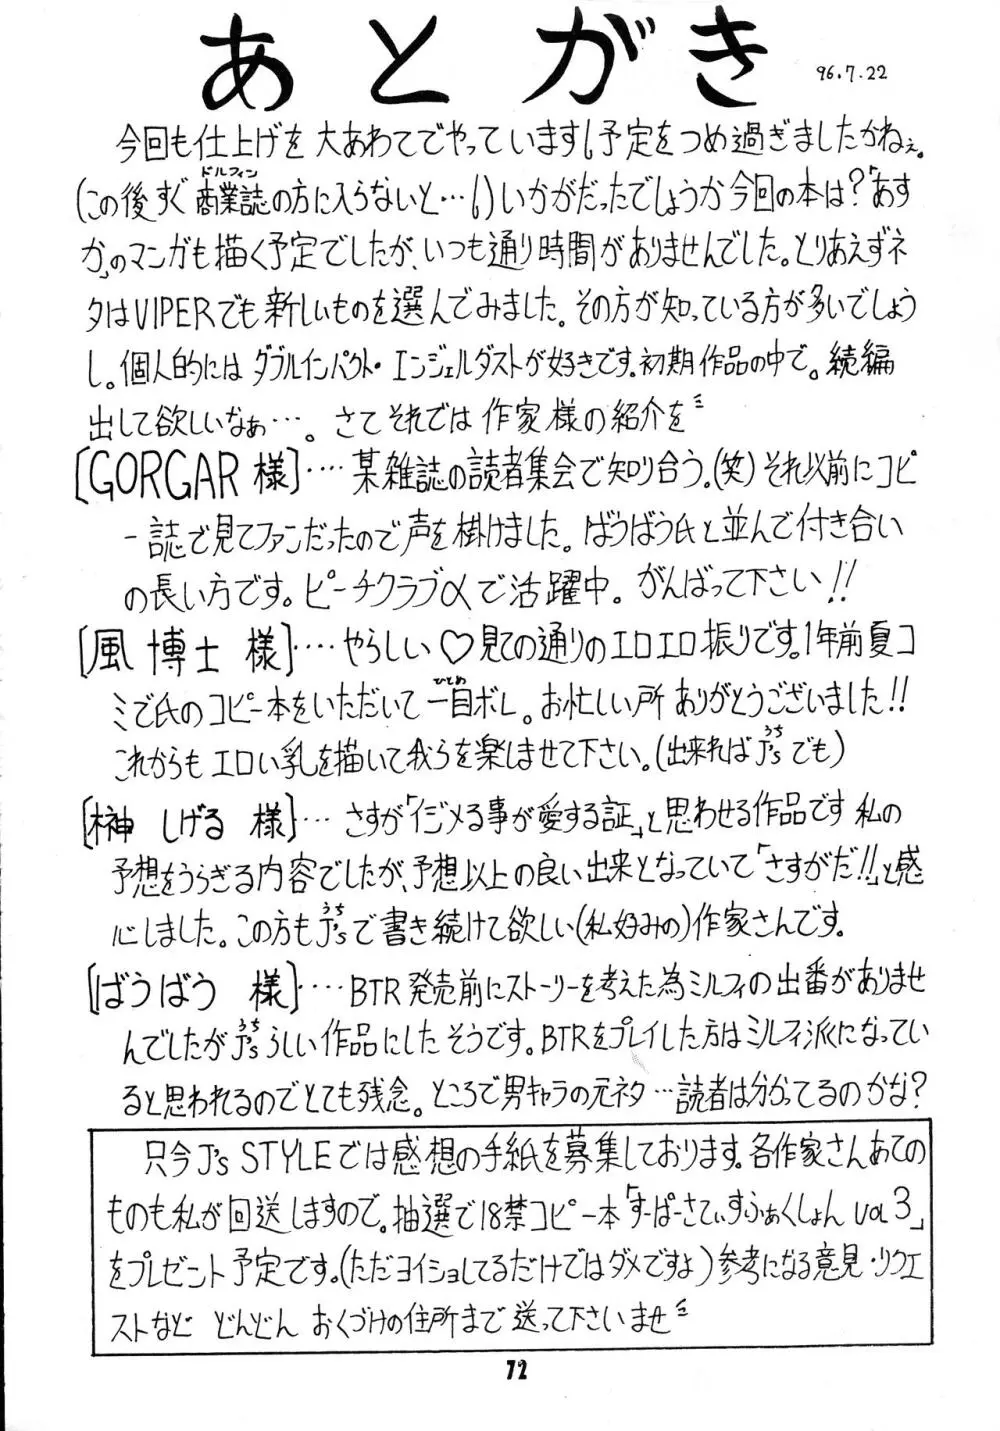 あとがき
96.7.22
今回も仕上げを大あわてでやっています。予定をつめ過ぎましたかねぇ。
ドルフィン
(この後すぐ商業誌の方に入らないと…。)いかがだったでしょうか今回の本は?「あす
か」のマンガも描く予定でしたが、いつも通り時間がありませんでした。とりあえずネ
タはVIPERでも新しいものを選んでみました。その方が知っている方が多いでしょう
し。個人的にはダブルインパクト・エンジェルダストが好きです。初期作品の中で。続編
出して欲しいなぁ…。さてそれでは作家様の紹介を
[GORGAR様]‥‥某雑誌の読者集会で知り合う。(笑)それ以前にコピ
ー誌で見てファンだったので声を掛けました。ばうばう氏と並んで付き合い
の長い方です。ピーチクラブαで活躍中。がんばって下さい!!
[風 博士 様]‥‥やらしい♡見ての通りのエロエロ振りです。1年前夏コ
ひとめ
ミで氏のコピー本をいただいて一目ボレ。お忙しい所ありがとうございました!!
うち
これからもエロい乳を描いて我らを楽しませて下さい。(出来ればJ'sでも)
[榊 しげる 様]‥‥さすが「イジメる事が愛する証」と思わせる作品です 私の
予想をうらぎる内容でしたが、予想以上の良い出来となっていて「さすがだ!!」と感
うち
心しました。この方もJ'sで書き続けて欲しい(私好みの)作家さんです。
[ばうばう 様]‥‥BTR発売前にストーリーを考えた為ミルフィの出番がありませ
うち
んでしたがJ'sらしい作品にしたそうです。BTRをプレイした方はミルフィ派になってい
ると思われるのでとても残念。ところで男キャラの元ネタ…読者は分かってるのかな?
只今J's STYLEでは感想の手紙を募集しております。各作家さんあての
ものも私が回送しますので。抽選で18禁コピー本「すーぱーさてぃすふぁくしょんvol3」
をプレゼント予定です。(ただヨイショしてるだけではダメですよ)参考になる意見・リクエ
ストなど どんどん おくづけの住所まで送って下さいませ
72